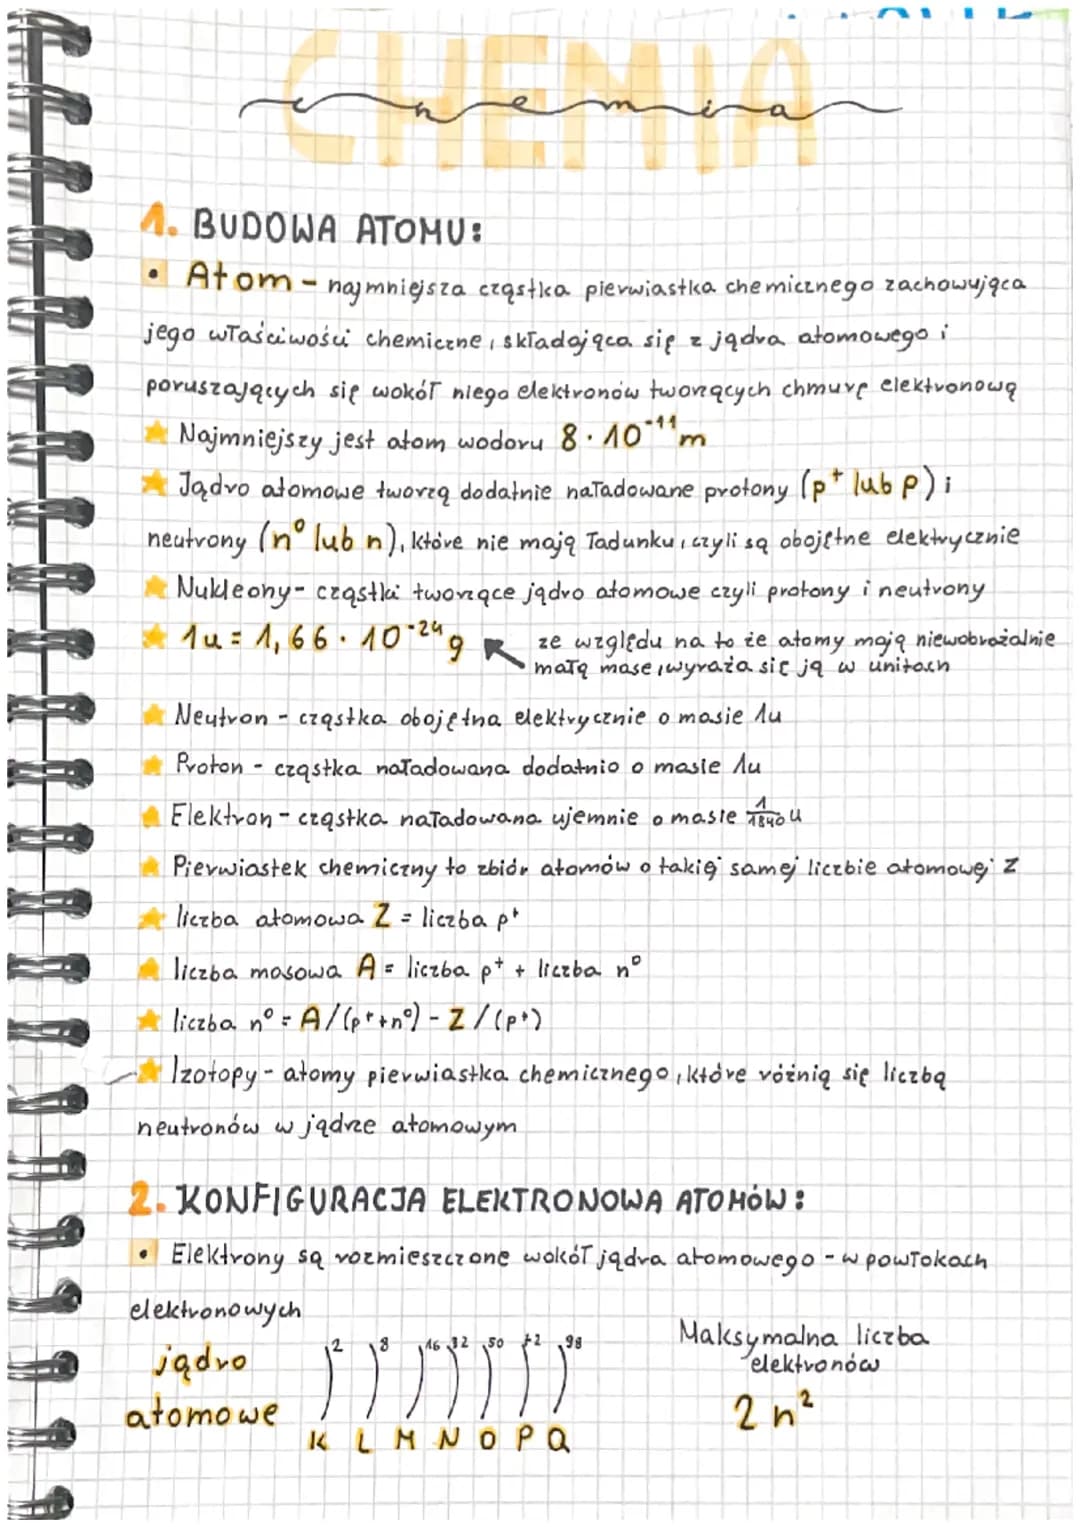 CHEMIA
chemia
1. BUDOWA ATOMU:
• Atom - najmniejsza cząstka pierwiastka chemicznego zachowująca
jego właściwości chemiczne, składająca się z jądra atomowego i
poruszających się wokół niego elektronów tworzących chmurę elektronową
Najmniejszy jest atom wodoru 8 · 10⁻¹¹ m
Jądro atomowe tworzą dodatnie naładowane protony (p⁺ lub p) i
neutrony (n⁰ lub n), które nie mają ładunku, czyli są obojętne elektrycznie
Nukleony - cząstki tworzące jądro atomowe czyli protony i neutrony
1u = 1,66 · 10⁻²⁴ g
ze względu na to że atomy mają niewobrażalnie
małą mase, wyraża się ją w unitach
Neutron - cząstka obojętna elektrycznie o masie 1u
Proton - cząstka naładowana dodatnio o masie 1u
Elektron - cząstka naładowana ujemnie o masie 1/1840 u
Pierwiastek chemiczny to zbiór atomów o takiej samej liczbie atomowej Z
liczba atomowa Z = liczba p⁺
liczba masowa A = liczba p⁺ + liczba n⁰
liczba n⁰ = A/(p⁺+n⁰) - Z/(p⁺)
Izotopy - atomy pierwiastka chemicznego, które różnią się liczbą
neutronów w jądrze atomowym
2. KONFIGURACJA ELEKTRONOWA ATOMÓW:
• Elektrony są rozmieszczone wokół jądra atomowego - w powłokach
elektronowych
jądro
atomowe
2 8 16 32 50 72 98
K L M N O P Q
Maksymalna liczba
elektronów
2n²